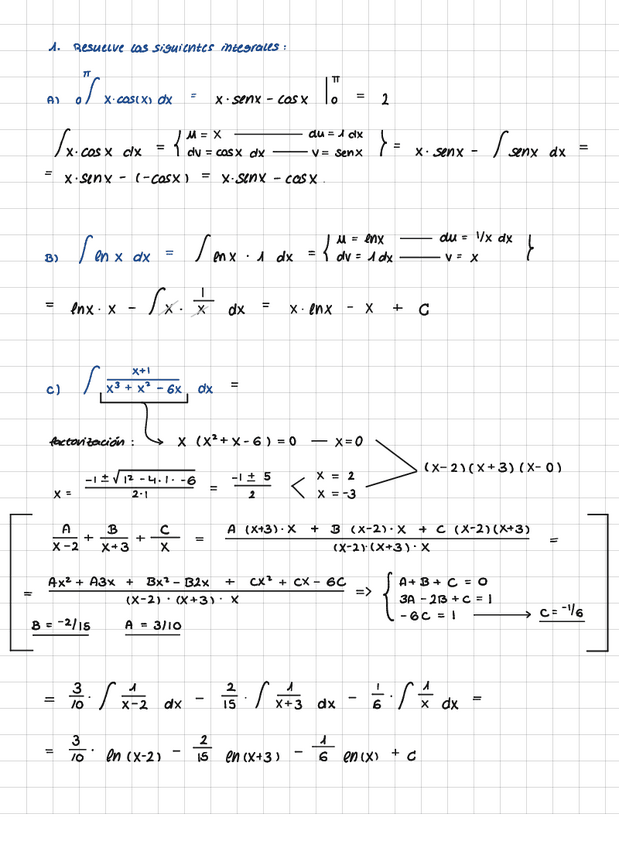 1. Resuelve las siguientes integrales:
A) 0∫π x·cos(x) dx = x·senx - cosx |π0 = 2
∫x·cosx dx = { u = x —— du = 1 dx
dv = cosx dx —— v = senx } = x·senx - ∫senx dx =
= x·senx - (-cosx) = x·senx - cosx.
B) ∫ln x dx = ∫lnx · 1 dx = { u = lnx —— du = 1/x dx
dv = 1 dx —— v = x }
= lnx·x - ∫x · 1/x dx = x·lnx - x + C
C) ∫ x+1 / x³ + x² - 6x dx =
factorización: → x (x² + x - 6) = 0 — x=0
x = -1 ± √1² - 4·1·-6 / 2·1 = -1 ± 5 / 2 < x = 2
x = -3
(x-2)(x+3)(x-0)
A/x-2 + B/x+3 + C/x = A (x+3)·x + B (x-2)·x + C (x-2)(x+3) / (x-2)·(x+3)·x =
= Ax² + A3x + Bx² - B2x + Cx² + Cx - 6C / (x-2)·(x+3)·x => { A + B + C = 0
3A - 2B + C = 1
-6C = 1 → C = -1/6
B = -2/15 A = 3/10
= 3/10 · ∫ 1/x-2 dx - 2/15 · ∫ 1/x+3 dx - 1/6 · ∫ 1/x dx =
= 3/10 · ln(x-2) - 2/15 ln(x+3) - 1/6 ln(x) + C